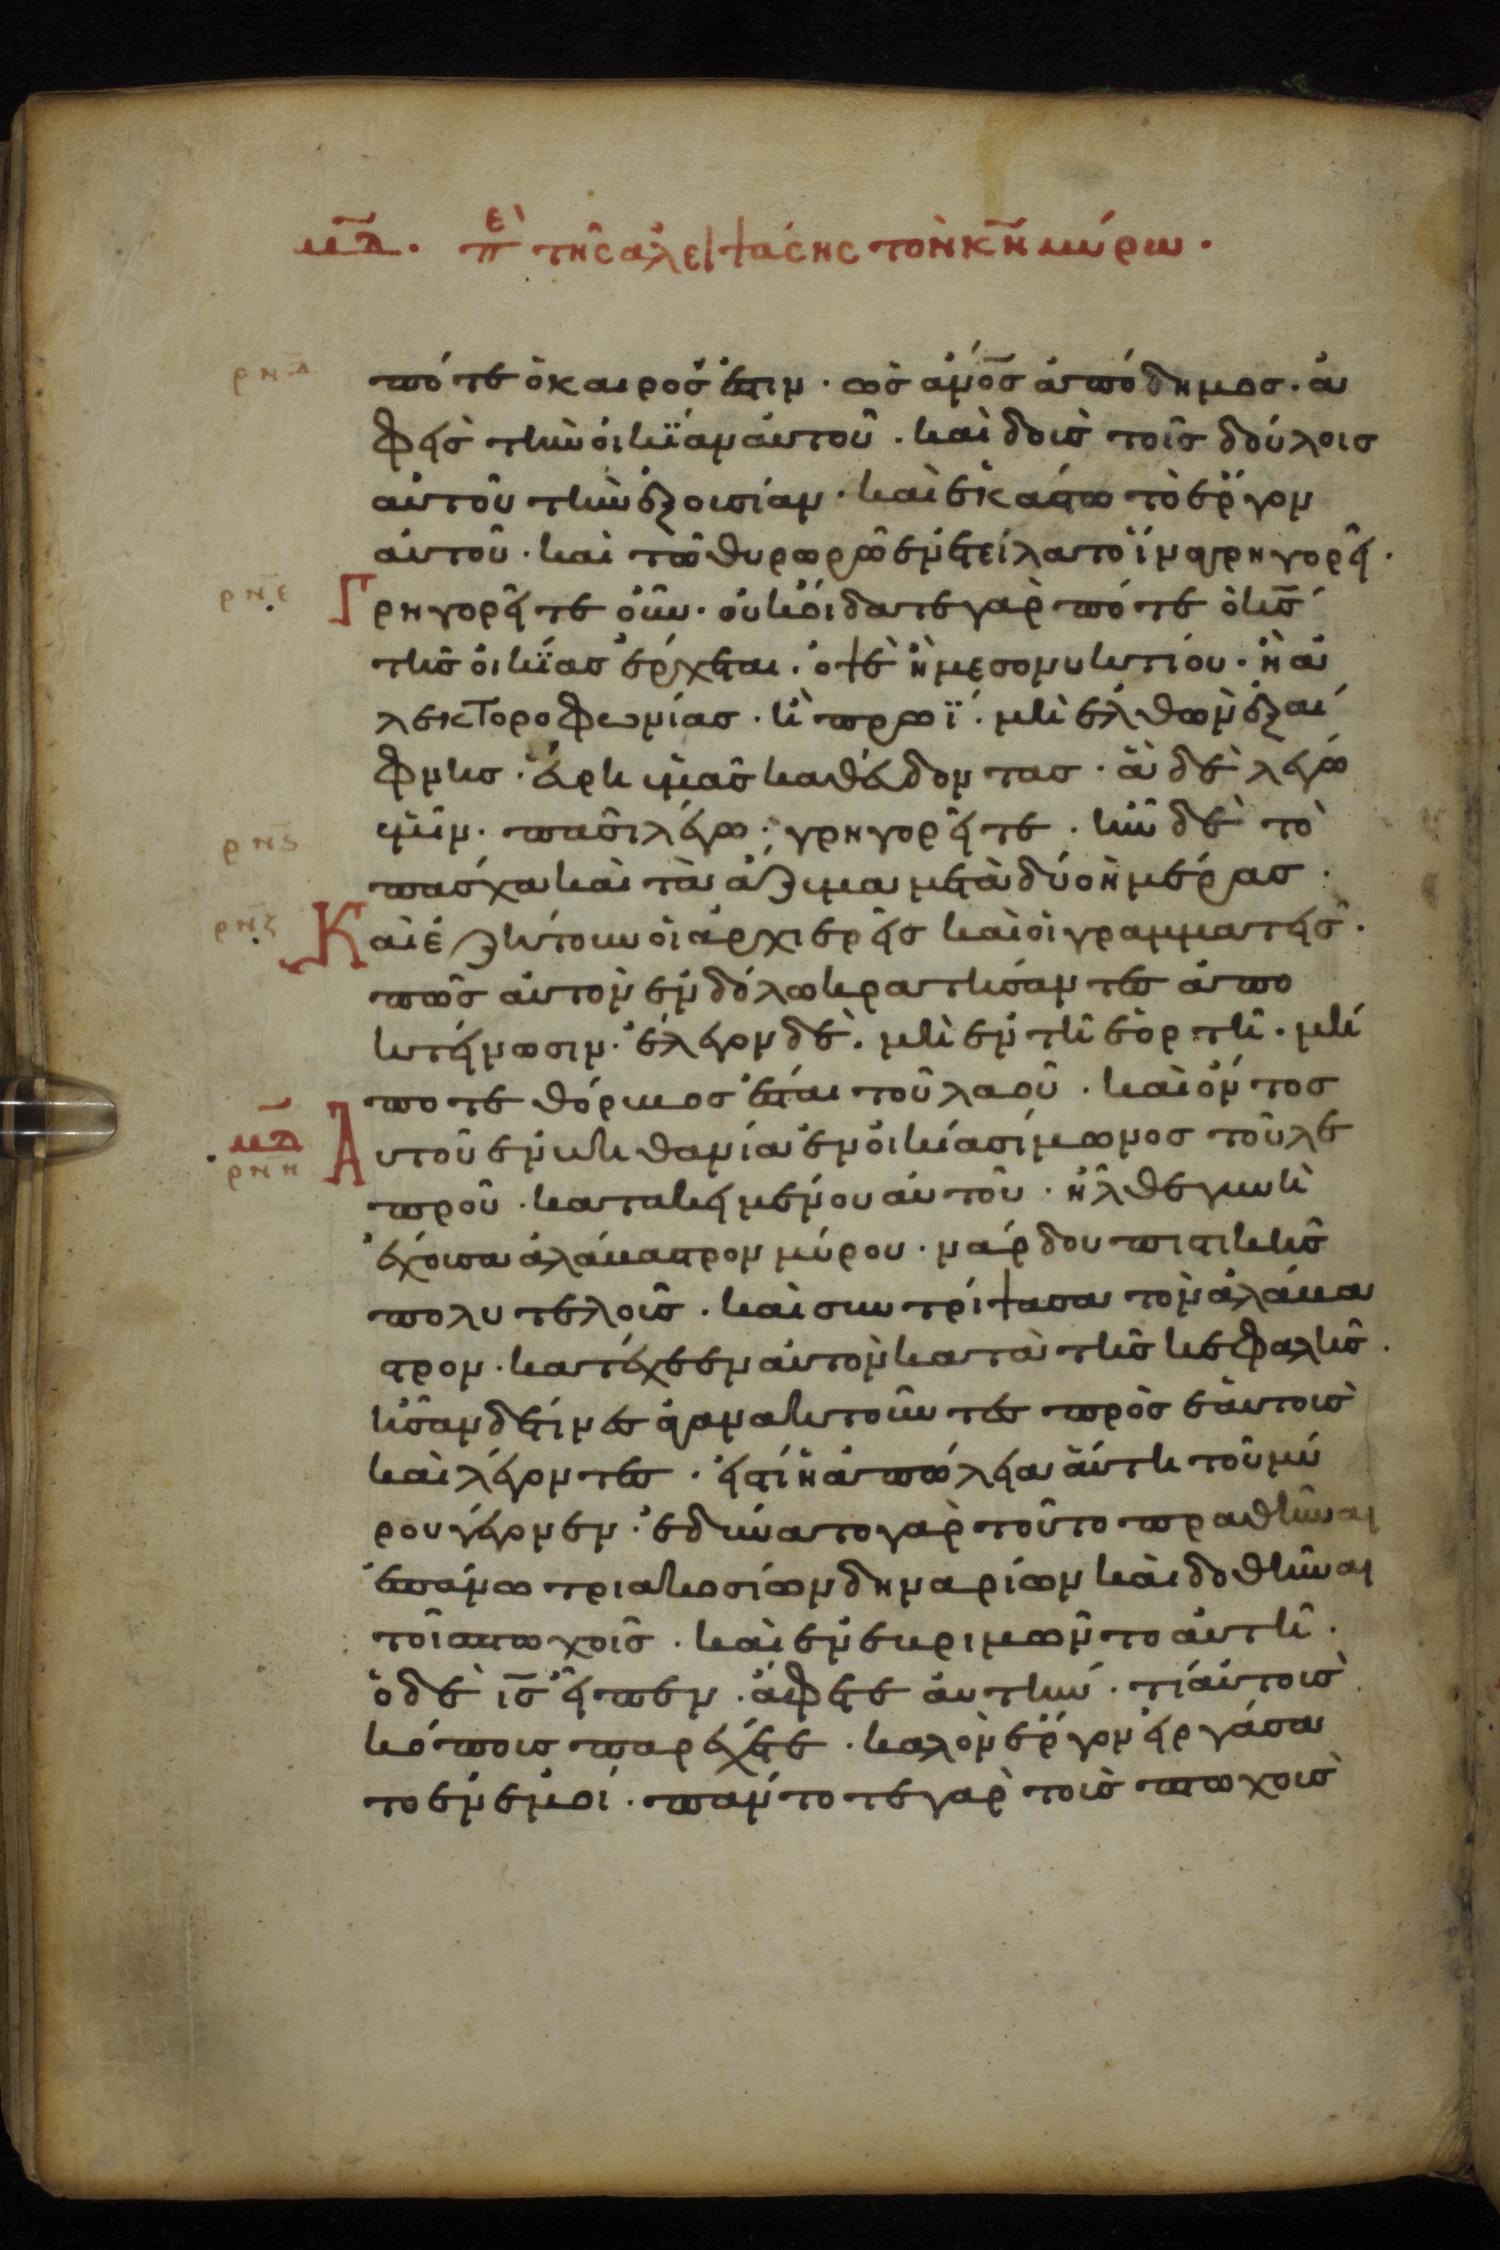 μδ. πε τῆς ἀλειψάσης τὸν κν μύρω.
ρνδ πότε ὁ καιρός ἐστιν· ὡς ανος ἀπόδημος· ἀ
φεὶς τὴν οἰκίαν αὐτοῦ· καὶ δοὺς τοῖς δούλοις
αὐτοῦ τὴν ἐξουσίαν· καὶ ἑκάστω τὸ ἔργον
αὐτοῦ· καὶ τῶ θυρωρῶ ἐνετείλατο ἵνα γρηγορῆ·
ρνε Γρηγορεῖτε οὖν· οὐκ οἴδατε γὰρ πότε ὁ κς
τῆς οἰκίας ἔρχεται· ὀψὲ ἢ μεσονυκτίου· ἢ ἀ
λεκτοροφωνίας· ἢ πρωΐ· μὴ ἐλθὼν ἐξαί
φνης· εὕρη ὑμᾶς καθεύδοντας· ἃ δὲ λέγω
ρνς ὑμῖν· πᾶσι λέγω· γρηγορεῖτε· ἦν δὲ τὸ
πάσχα καὶ τὰ ἄζυμα μετὰ δύο ἡμέρας·
ρνζ Καὶ ἐζήτουν οἱ ἀρχιερεῖς καὶ οἱ γραμματεῖς·
πῶς αὐτὸν ἐν δόλω κρατήσαντες ἀπο
κτείνωσιν· ἔλεγον δὲ· μὴ ἐν τῆ ἑορτῆ· μή
ποτε θόρυβος ἔσται τοῦ λαοῦ· καὶ ὄντος
μδ ρνη Αυτοῦ ἐν βηθανία ἐν οἰκία σίμωνος τοῦ λε
προῦ· κατακειμένου αὐτοῦ· ἦλθε γυνὴ
ἔχουσα ἀλάβαστρον μύρου· νάρδου πιστικῆς
πολυτελοῦς· καὶ συντρίψασα τὸν ἀλάβα
στρον· κατέχεεν αὐτὸν κατὰ τῆς κεφαλῆς·
ἦσαν δέ τινες ἀγανακτοῦντες πρὸς ἑαυτοὺς
καὶ λέγοντες· εἰς τί ἡ ἀπώλεια αὕτη τοῦ μύ
ρου γέγονεν· ἐδύνατο γὰρ τοῦτο πραθῆναι
ἐπάνω τριακοσίων δηναρίων καὶ δοθῆναι
τοῖς πτωχοῖς· καὶ ἐνεβριμῶντο αὐτῆ·
ὁ δὲ ις εἶπεν· ἄφετε αὐτήν· τί αὐτοῖς
κόπους παρέχετε· καλὸν ἔργον εἰργάσα
το ἐν ἐμοί· πάντοτε γὰρ τοὺς πτωχοὺς